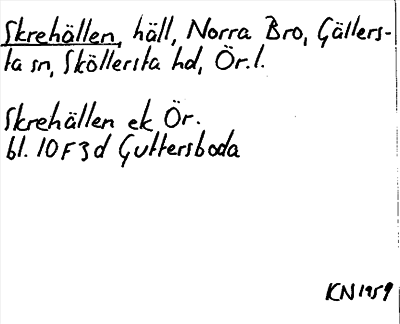 Skrehällen, häll, Norra Bro, Gällers-
ta sn, Sköllersta hd, Ör.l.
Skrehällen ek Ör.
bl. 10F3d Guttersboda
KN1959